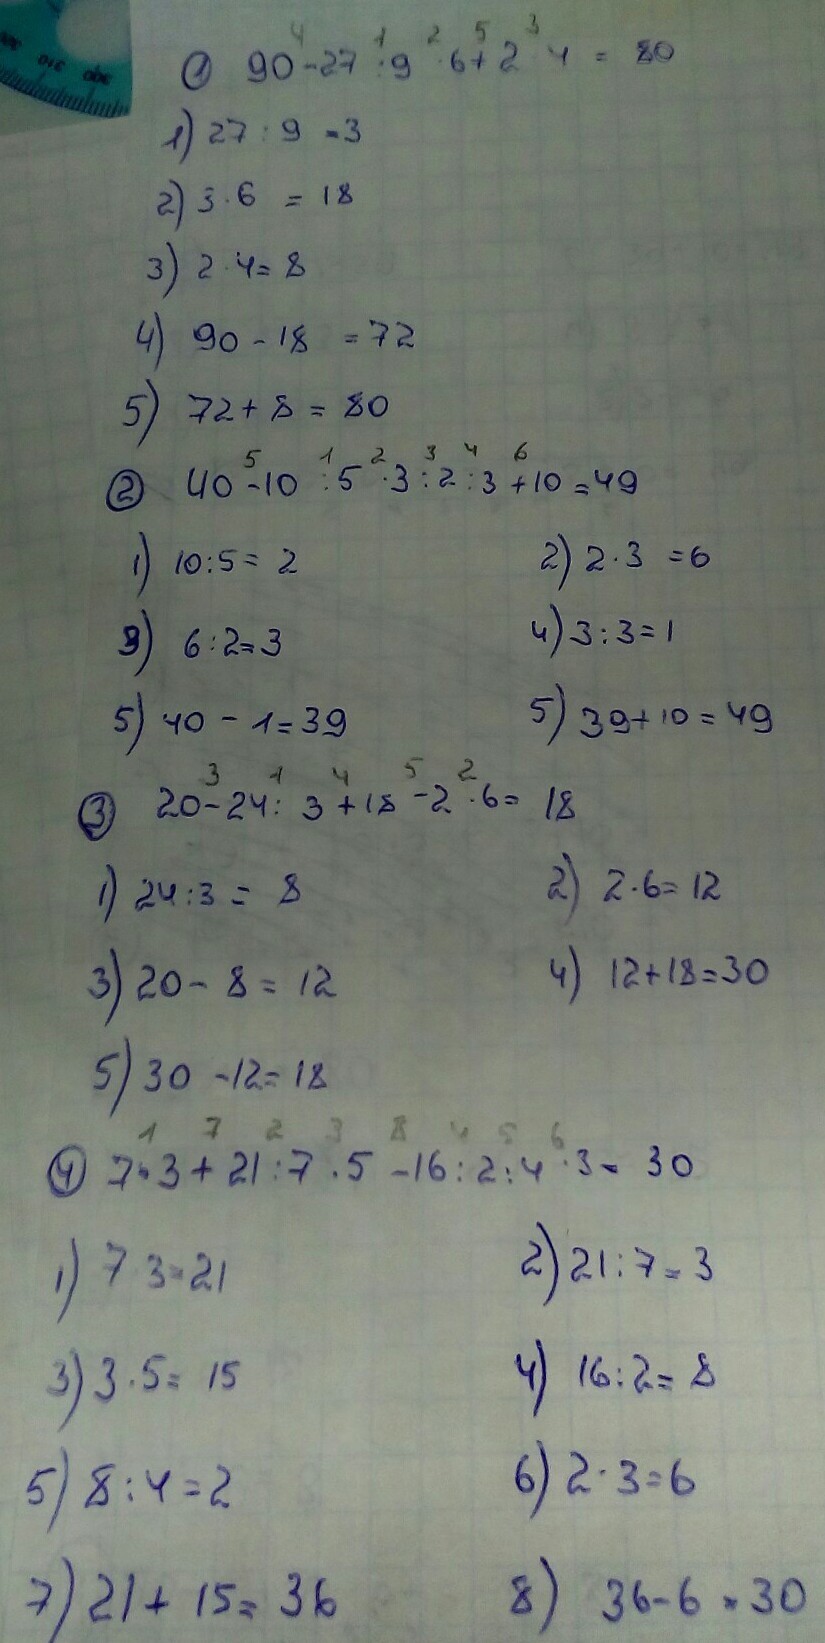 4 1 2 5 3
① 90-27:9·6+2·4=80
1) 27:9=3
2) 3·6=18
3) 2·4=8
4) 90-18=72
5) 72+8=80
5 1 2 3 4 6
② 40-10:5·3:2:3+10=49
1) 10:5=2 2) 2·3=6
3) 6:2=3 4) 3:3=1
5) 40-1=39 5) 39+10=49
3 1 4 5 2
③ 20-24:3+18-2·6=18
1) 24:3=8 2) 2·6=12
3) 20-8=12 4) 12+18=30
5) 30-12=18
1 7 2 3 8 4 5 6
④ 7·3+21:7·5-16:2:4·3=30
1) 7 3=21 2) 21:7=3
3) 3·5=15 4) 16:2=8
5) 8:4=2 6) 2·3=6
7) 21+15=36 8) 36-6=30